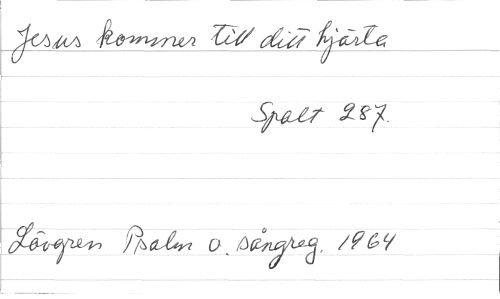 Jesus kommer till ditt hjärta
Spalt 287.
Lövgren Psalm o. sångreg. 1964